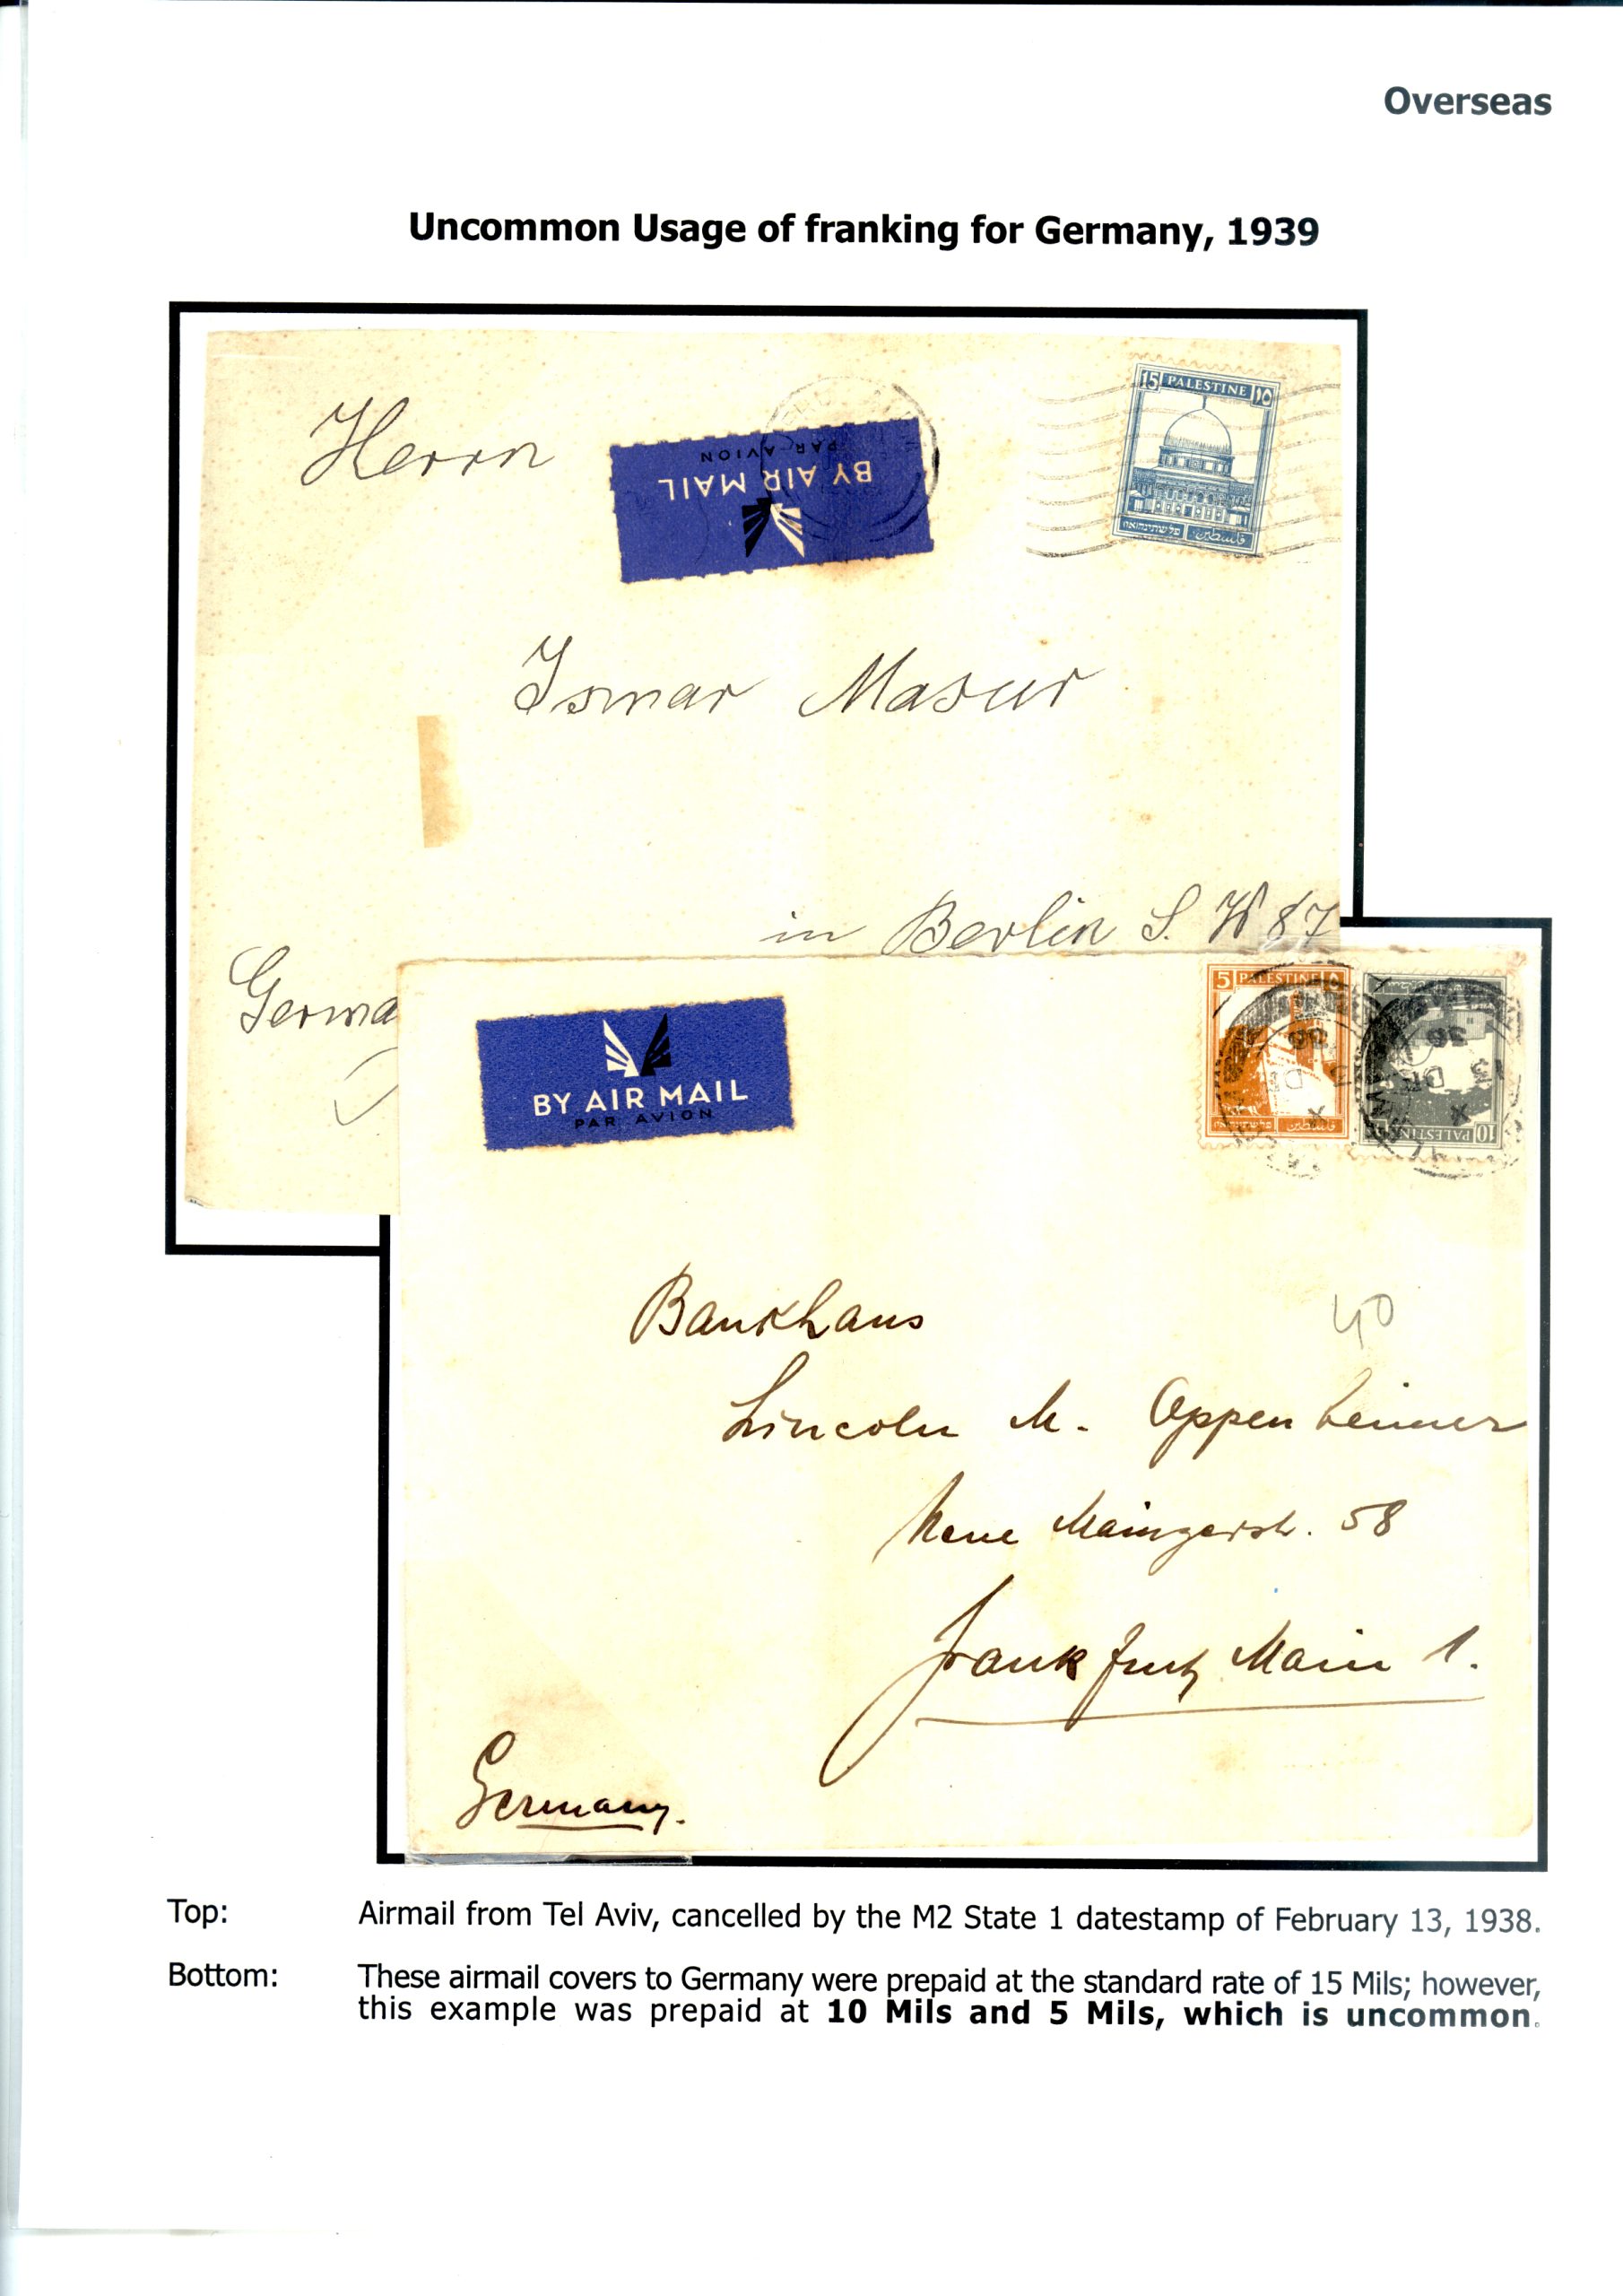 Overseas
Uncommon Usage of franking for Germany, 1939
Herrn
BY AIR MAIL
PAR AVION
15 PALESTINE ١٥
פלשתינה א״י فلسطين
Ismar Masur
in Berlin S. W 87
Germa
5 PALESTINE ٥
פלשתינה א״י فلسطين
PALESTINE 10
13 DE
36
BY AIR MAIL
PAR AVION
Bankhaus
40
Lincoln M. Oppenheimer
Neue Mainzerstr. 58
Frankfurt Main 1.
Germany.
Top: Airmail from Tel Aviv, cancelled by the M2 State 1 datestamp of February 13, 1938.
Bottom: These airmail covers to Germany were prepaid at the standard rate of 15 Mils; however,
this example was prepaid at 10 Mils and 5 Mils, which is uncommon.